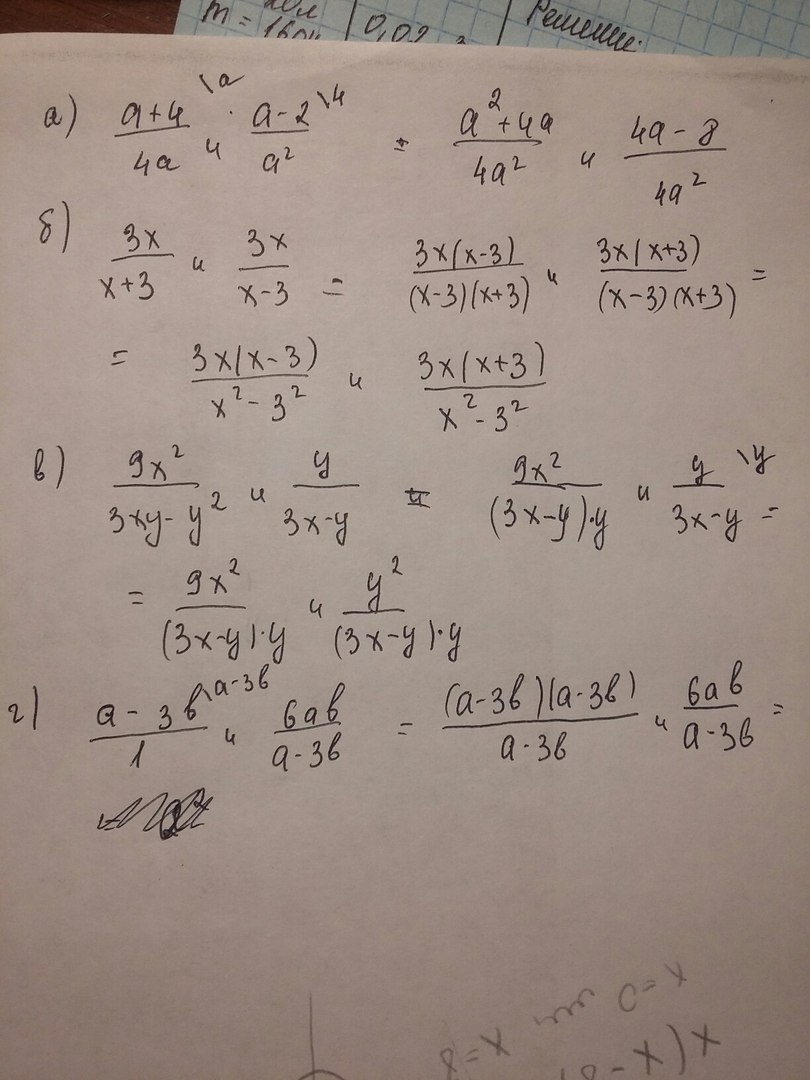 m = 1601 | 0,02 Решение:
а) (a+4)/(4a) \a и (a-2)/(a²) \4 = (a²+4a)/(4a²) и (4a-8)/(4a²)
б) (3x)/(x+3) и (3x)/(x-3) = (3x(x-3))/((x-3)(x+3)) и (3x(x+3))/((x-3)(x+3)) =
= (3x(x-3))/(x²-3²) и (3x(x+3))/(x²-3²)
в) (9x²)/(3xy-y²) и (y)/(3x-y) = (9x²)/((3x-y)·y) и (y)/(3x-y) \y =
= (9x²)/((3x-y)·y) и (y²)/((3x-y)·y)
г) (a-3b)/(1) \a-3b и (6ab)/(a-3b) = ((a-3b)(a-3b))/(a-3b) и (6ab)/(a-3b) =